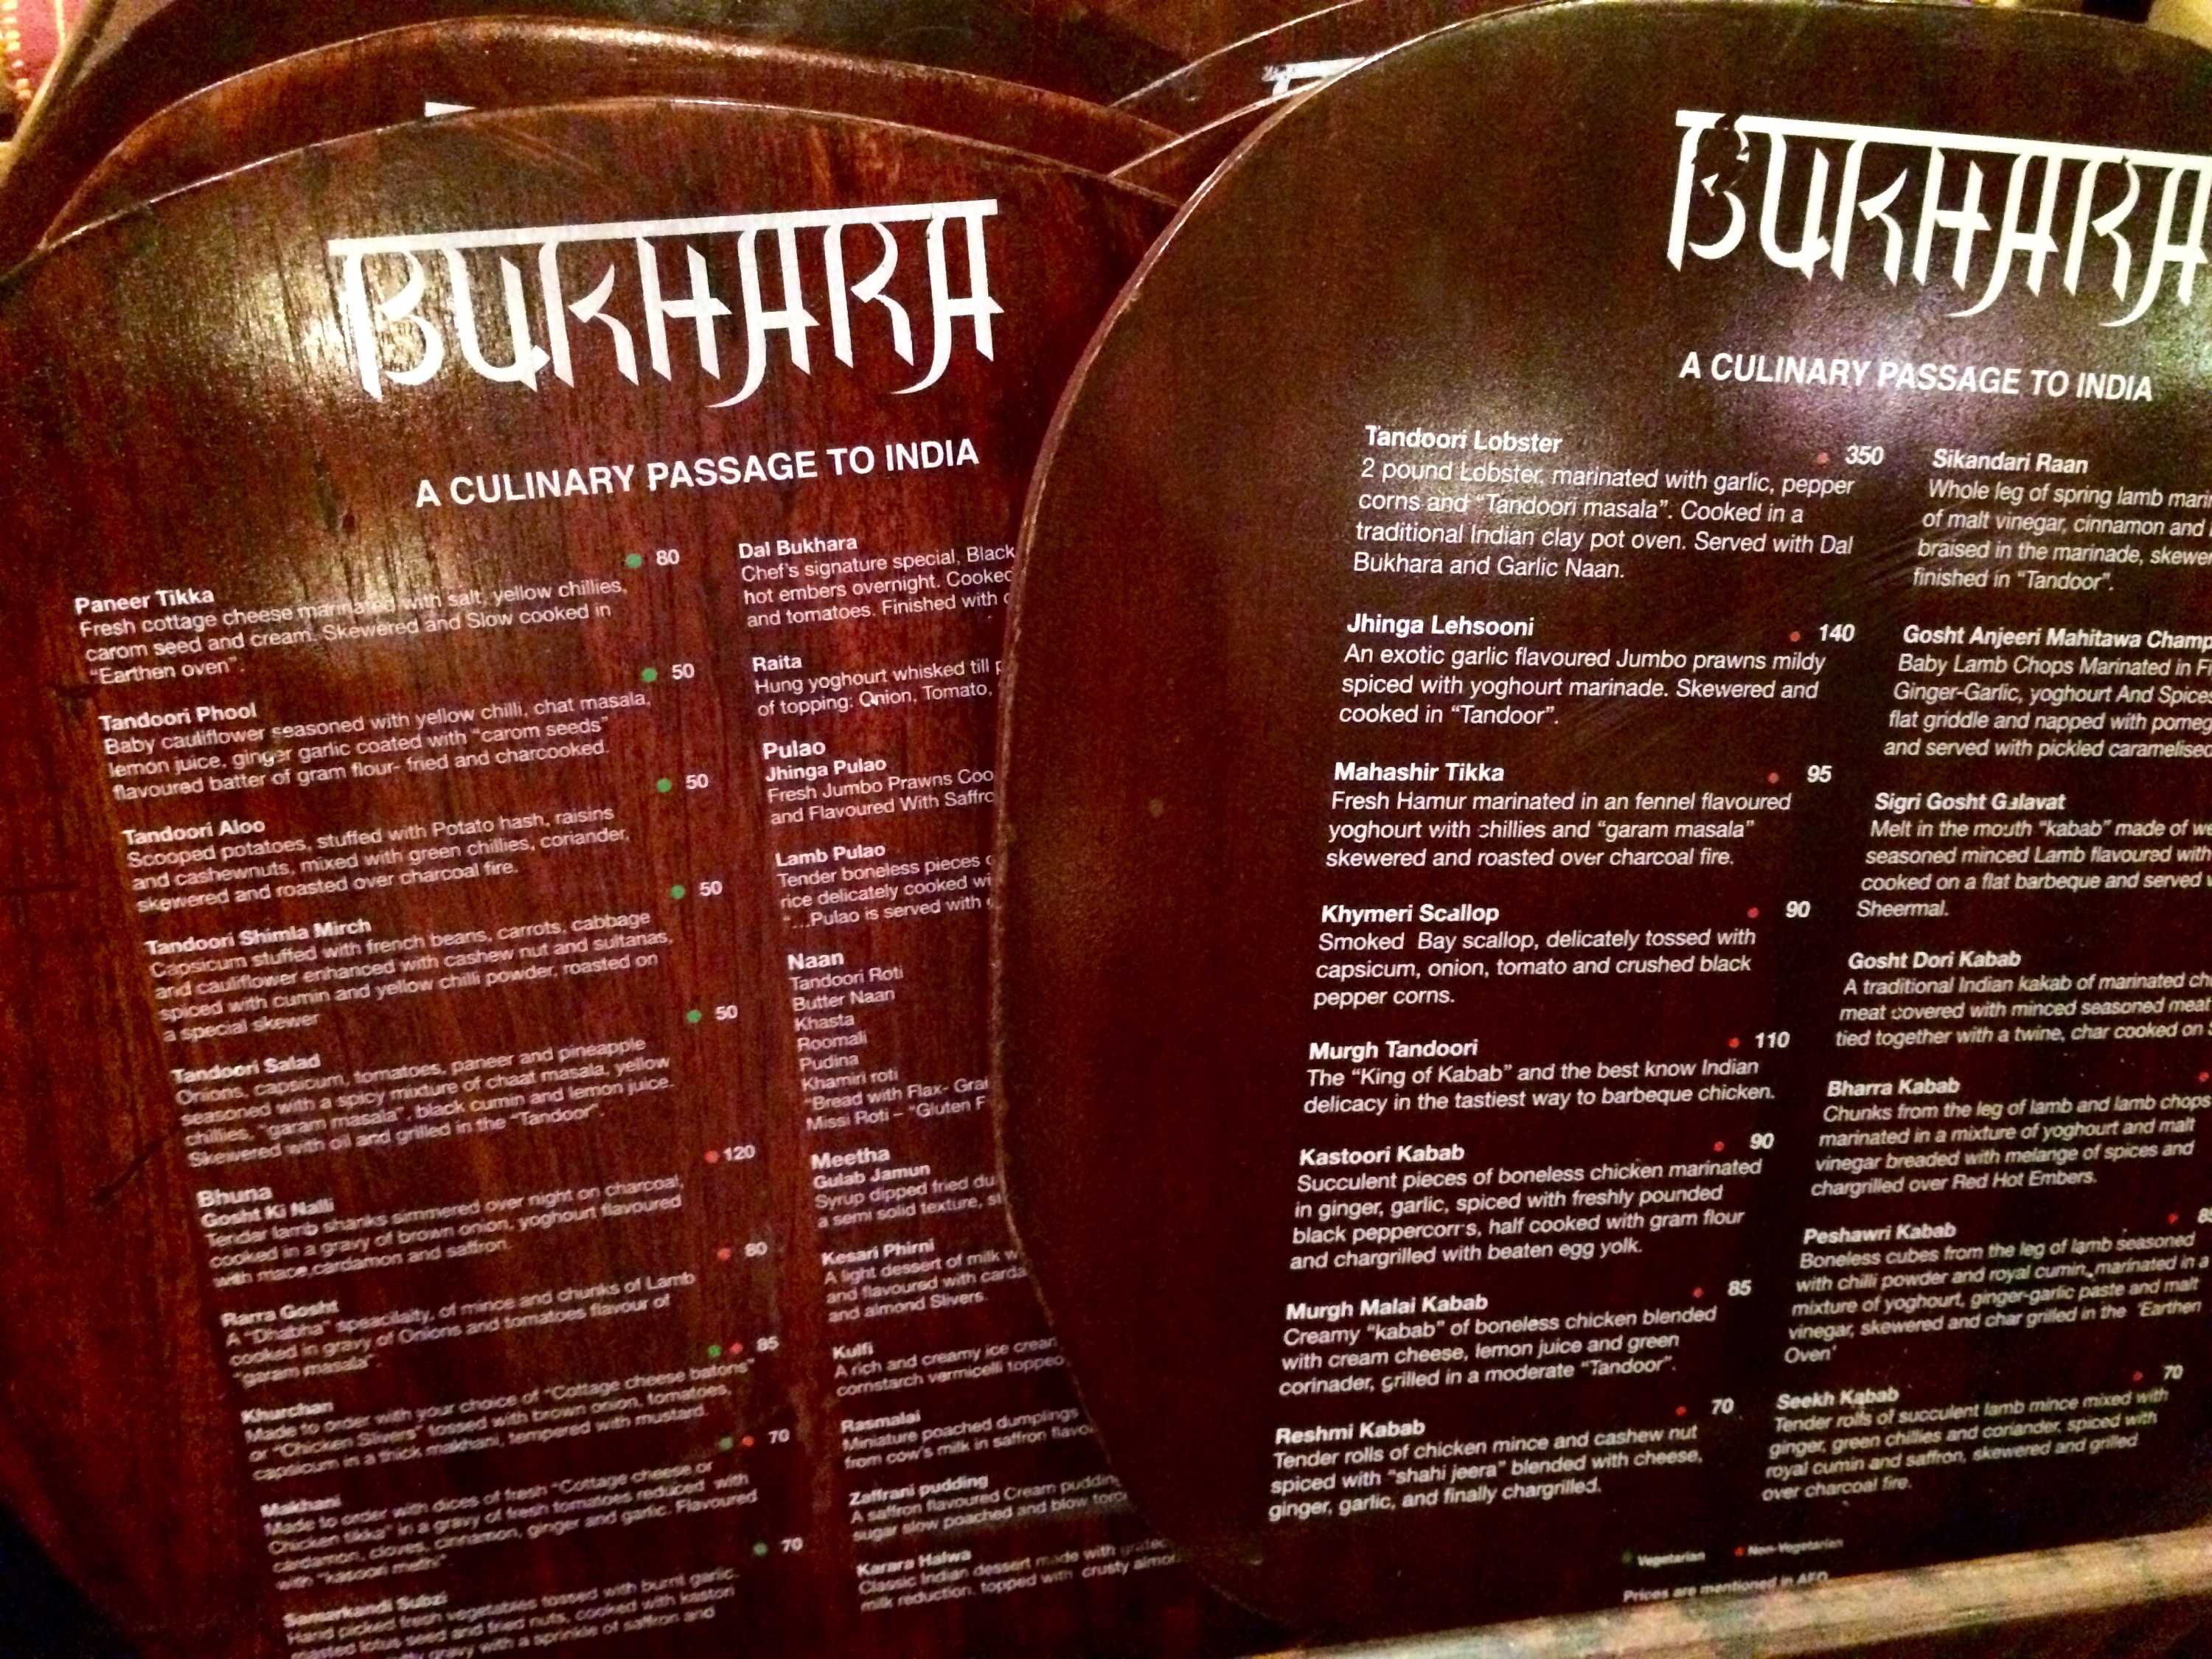 BUKHARA
A CULINARY PASSAGE TO INDIA
Paneer Tikka 80
Fresh cottage cheese marinated with salt, yellow chillies,
carom seed and cream. Skewered and Slow cooked in
“Earthen oven”.
Tandoori Phool 50
Baby cauliflower seasoned with yellow chilli, chat masala,
lemon juice, ginger garlic coated with “carom seeds”
flavoured batter of gram flour- fried and charcooked.
Tandoori Aloo 50
Scooped potatoes, stuffed with Potato hash, raisins
and cashewnuts, mixed with green chillies, coriander,
skewered and roasted over charcoal fire.
Tandoori Shimla Mirch 50
Capsicum stuffed with french beans, carrots, cabbage
and cauliflower enhanced with cashew nut and sultanas,
spiced with cumin and yellow chilli powder, roasted on
a special skewer
Tandoori Salad 50
Onions, capsicum, tomatoes, paneer and pineapple
seasoned with a spicy mixture of chaat masala, yellow
chillies, “garam masala”, black cumin and lemon juice.
Skewered with oil and grilled in the “Tandoor”.
Bhuna 120
Gosht Ki Nalli
Tender lamb shanks simmered over night on charcoal,
cooked in a gravy of brown onion, yoghourt flavoured
with mace,cardamon and saffron.
Rarra Gosht 80
A “Dhabha” speacilaity, of mince and chunks of Lamb
cooked in gravy of Onions and tomatoes flavour of
“garam masala”.
Khurchan 85
Made to order with your choice of “Cottage cheese batons”
or “Chicken Slivers” tossed with brown onion, tomatoes,
capsicum in a thick makhani, tempered with mustard.
Makhani 70
Made to order with dices of fresh “Cottage cheese or
Chicken tikka” in a gravy of fresh tomatoes reduced with
cardamon, cloves, cinnamon, ginger and garlic. Flavoured
with “kasoori methi”.
Samarkandi Subzi 70
Hand picked fresh vegetables tossed with burnt garlic,
roasted lotus seed and fried nuts, cooked with kastori
gravy with a sprinkle of saffron and
Dal Bukhara
Chef's signature special, Black
hot embers overnight. Cooked
and tomatoes. Finished with
Raita
Hung yoghourt whisked till
of topping: Onion, Tomato,
Pulao
Jhinga Pulao
Fresh Jumbo Prawns Coo
and Flavoured With Saffro
Lamb Pulao
Tender boneless pieces
rice delicately cooked wi
“...Pulao is served with
Naan
Tandoori Roti
Butter Naan
Khasta
Roomali
Pudina
Khamiri roti
“Bread with Flax- Grai
Missi Roti – “Gluten F
Meetha
Gulab Jamun
Syrup dipped fried du
a semi solid texture, s
Kesari Phirni
A light dessert of milk w
and flavoured with carda
and almond Slivers.
Kulfi
A rich and creamy ice crean
cornstarch vermicelli topped
Rasmalai
Miniature poached dumplings
from cow's milk in saffron flavo
Zaffrani pudding
A saffron flavoured Cream pudding
sugar slow poached and blow torc
Karara Halwa
Classic Indian dessert made with grated
milk reduction. topped with crusty almon
BUKHARA
A CULINARY PASSAGE TO INDIA
Tandoori Lobster 350
2 pound Lobster, marinated with garlic, pepper
corns and “Tandoori masala”. Cooked in a
traditional Indian clay pot oven. Served with Dal
Bukhara and Garlic Naan.
Jhinga Lehsooni 140
An exotic garlic flavoured Jumbo prawns mildy
spiced with yoghourt marinade. Skewered and
cooked in “Tandoor”.
Mahashir Tikka 95
Fresh Hamur marinated in an fennel flavoured
yoghourt with chillies and “garam masala”
skewered and roasted over charcoal fire.
Khymeri Scallop 90
Smoked Bay scallop, delicately tossed with
capsicum, onion, tomato and crushed black
pepper corns.
Murgh Tandoori 110
The “King of Kabab” and the best know Indian
delicacy in the tastiest way to barbeque chicken.
Kastoori Kabab 90
Succulent pieces of boneless chicken marinated
in ginger, garlic, spiced with freshly pounded
black peppercorrs, half cooked with gram flour
and chargrilled with beaten egg yolk.
Murgh Malai Kabab 85
Creamy “kabab” of boneless chicken blended
with cream cheese, lemon juice and green
corinader, grilled in a moderate “Tandoor”.
Reshmi Kabab 70
Tender rolls of chicken mince and cashew nut
spiced with “shahi jeera” blended with cheese,
ginger, garlic, and finally chargrilled.
Sikandari Raan
Whole leg of spring lamb mari
of malt vinegar, cinnamon and
braised in the marinade, skewe
finished in “Tandoor”.
Gosht Anjeeri Mahitawa Champ
Baby Lamb Chops Marinated in F
Ginger-Garlic, yoghourt And Spice
flat griddle and napped with pomeg
and served with pickled caramelised
Sigri Gosht Galavat
Melt in the mouth “kabab” made of w
seasoned minced Lamb flavoured with
cooked on a flat barbeque and served
Sheermal.
Gosht Dori Kabab
A traditional Indian kakab of marinated ch
meat covered with minced seasoned meat
tied together with a twine, char cooked on
Bharra Kabab
Chunks from the leg of lamb and lamb chops
marinated in a mixture of yoghourt and malt
vinegar breaded with melange of spices and
chargrilled over Red Hot Embers.
Peshawri Kabab 85
Boneless cubes from the leg of lamb seasoned
with chilli powder and royal cumin, marinated in a
mixture of yoghourt, ginger-garlic paste and malt
vinegar, skewered and char grilled in the ‘Earthen
Oven’
Seekh Kabab 70
Tender rolls of succulent lamb mince mixed with
ginger, green chillies and coriander, spiced with
royal cumin and saffron, skewered and grilled
over charcoal fire.
Vegetarian Non-Vegetarian
Prices are mentioned in AED